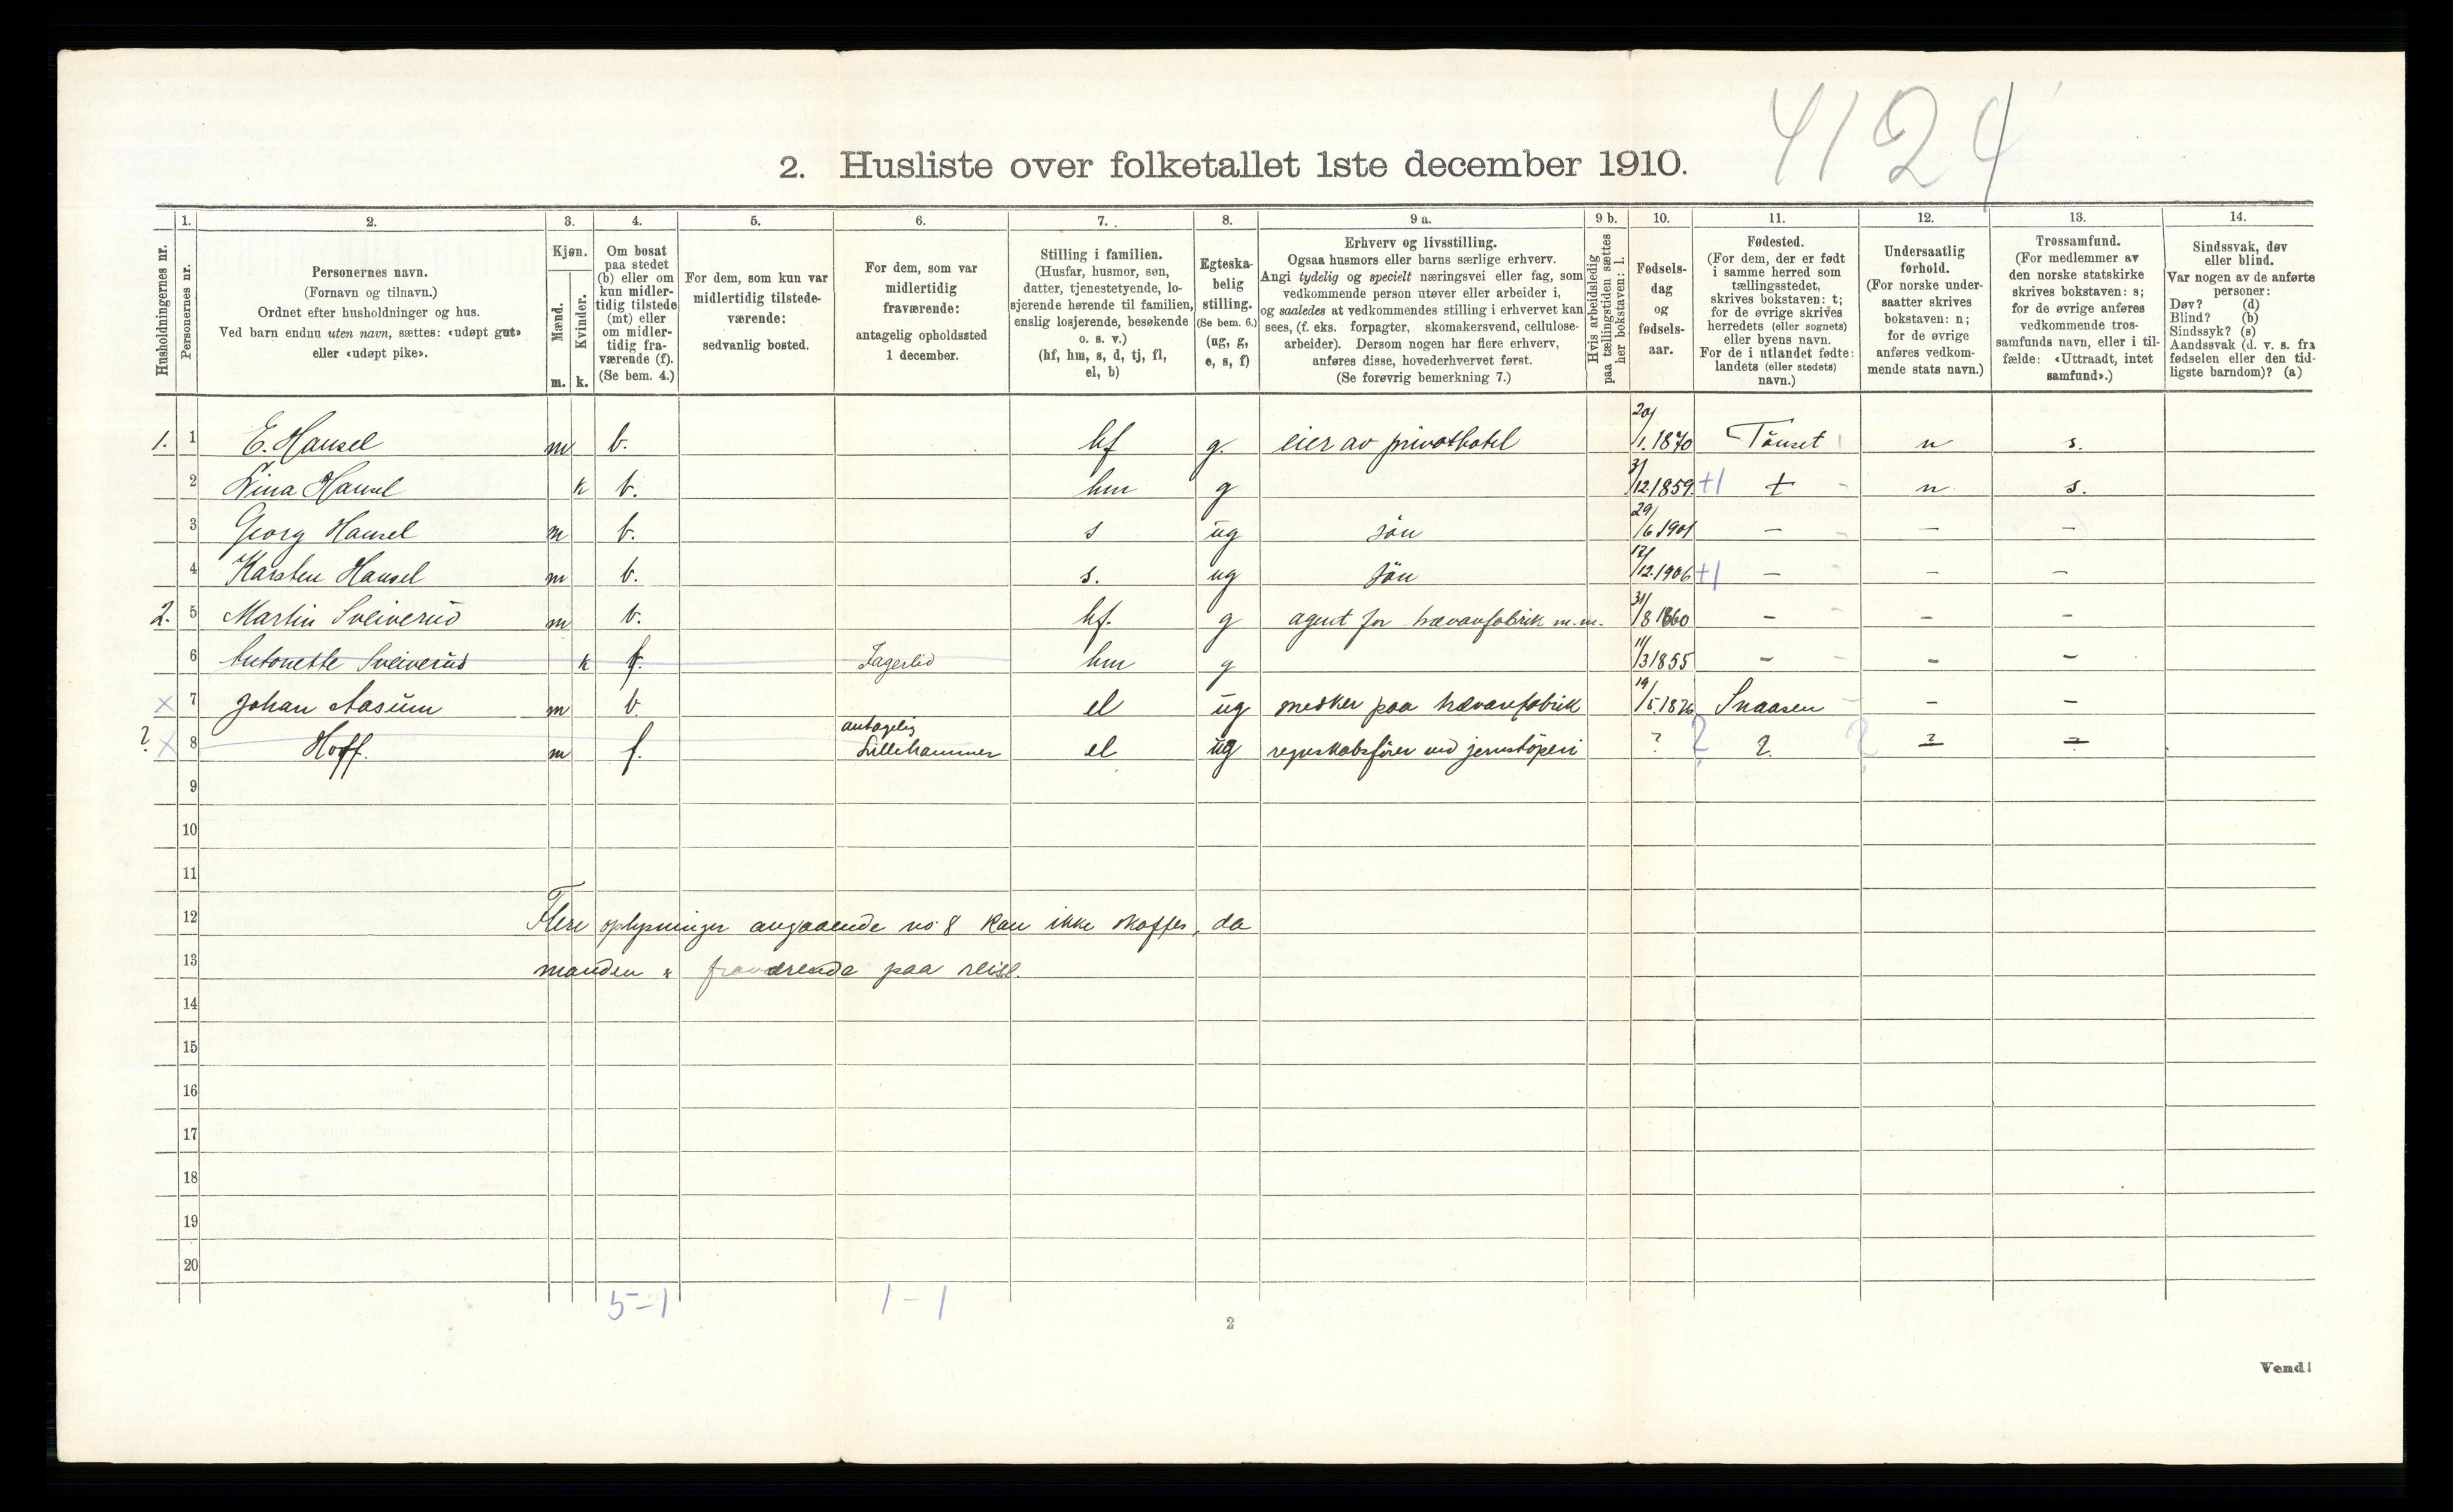 4124
2. Husliste over folketallet 1ste december 1910.
Husholdningernes nr.
1.
Personernes nr.
2.
Personernes navn.
(Fornavn og tilnavn.)
Ordnet efter husholdninger og hus.
Ved barn endnu uten navn, sættes: «udøpt gut»
eller «udøpt pike».
3.
Kjøn.
Mænd.
Kvinder.
m. k.
4.
Om bosat
paa stedet
(b) eller om
kun midler-
tidig tilstede
(mt) eller
om midler-
tidig fra-
værende (f).
(Se bem. 4.)
5.
For dem, som kun var
midlertidig tilstede-
værende:
sedvanlig bosted.
6.
For dem, som var
midlertidig
fraværende:
antagelig opholdssted
1 december.
7.
Stilling i familien.
(Husfar, husmor, søn,
datter, tjenestetyende, lo-
sjerende hørende til familien,
enslig losjerende, besøkende
o. s. v.)
(hf, hm, s, d, tj, fl,
el, b)
8.
Egteska-
belig
stilling.
(Se bem. 6.)
(ug, g,
e, s, f)
9 a.
Erhverv og livsstilling.
Ogsaa husmors eller barns særlige erhverv.
Angi tydelig og specielt næringsvei eller fag, som
vedkommende person utøver eller arbeider i,
og saaledes at vedkommendes stilling i erhvervet kan
sees, (f. eks. forpagter, skomakersvend, cellulose-
arbeider). Dersom nogen har flere erhverv,
anføres disse, hovederhvervet først.
(Se forøvrig bemerkning 7.)
9 b.
Hvis arbeidsledig
paa tællingstiden sættes
her bokstaven: l.
10.
Fødsels-
dag
og
fødsels-
aar.
11.
Fødested.
(For dem, der er født
i samme herred som
tællingsstedet,
skrives bokstaven: t;
for de øvrige skrives
herredets (eller sognets)
eller byens navn.
For de i utlandet fødte:
landets (eller stedets)
navn.)
12.
Undersaatlig
forhold.
(For norske under-
saatter skrives
bokstaven: n;
for de øvrige
anføres vedkom-
mende stats navn.)
13.
Trossamfund.
(For medlemmer av
den norske statskirke
skrives bokstaven: s;
for de øvrige anføres
vedkommende tros-
samfunds navn, eller i til-
fælde: «Uttraadt, intet
samfund».)
14.
Sindssvak, døv
eller blind.
Var nogen av de anførte
personer:
Døv? (d)
Blind? (b)
Sindssyk? (s)
Aandssvak (d. v. s. fra
fødselen eller den tid-
ligste barndom)? (a)
1. 1 E. Hansel m b. hf g. eier av privathotel 20/1.1870 Tönset n s.
2 Nina Hansel k b. hm g 31/12.1859 +1 t n s.
3 Georg Hansel m b. s ug sön 29/6 1901 – – –
4 Karsten Hansel m b. s. ug sön 17/12.1906 +1 – – –
2. 5 Martin Sveiverud m b. hf. g agent for trævarefabrik m.m. 31/8 1860 – – –
6 Antonette Sveiverud k f. Fagerlid hm g 11/3 1855 – – –
x 7 Johan Aasum m b. el ug snedker paa trævarefabrik 19/5.1876 Snaasen – –
? x 8 Hoff. m f. antagelig Lillehammer el ug regnskabsfører ved jernstöperi ? ? ? ?
9
10
11
12 Flere oplysninger angaaende no 8 kan ikke skaffes, da
13 manden er fraværende paa reise.
14
15
16
17
18
19
20
5–1 1–1
2
Vend!